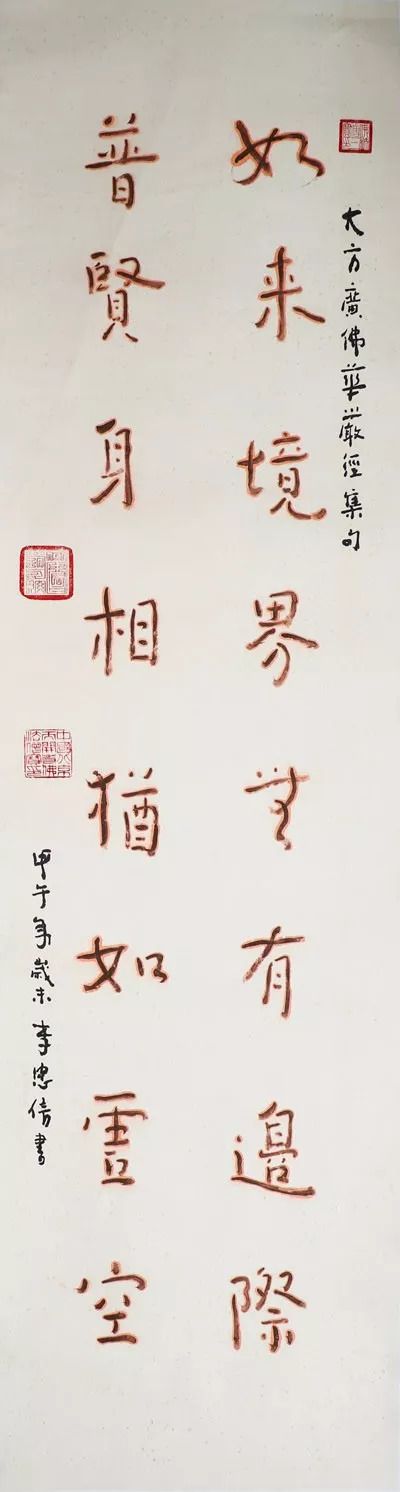 大方廣佛華嚴經集句
如来境界無有邊際
普賢身相猶如虛空
甲午年歲末李忠書